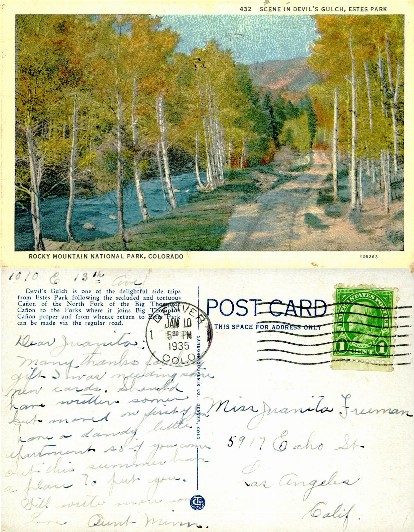 432 SCENE IN DEVIL'S GULCH, ESTES PARK
ROCKY MOUNTAIN NATIONAL PARK, COLORADO
1010 E. 13th
Devil's Gulch is one of the delightful side trips
from Estes Park following the secluded and tortuous
Cañon of the North Fork of the Big Thompson
Cañon to the Forks where it joins Big Thompson
Cañon proper and from whence return to Estes Park
can be made via the regular road.
POST CARD
THIS SPACE FOR ADDRESS ONLY
DENVER
JAN 10
1935
COLO.
1 1
Dear Juanita.
Many thanks for
gift & now writing on
new cards. Would
have written sooner
but moved on first of
have a dandy little
apartment so if you come
out this summer have
a place to put you.
Will write more
Love Aunt
Miss Juanita Freeman
5917 Echo St
Los Angeles
Calif.